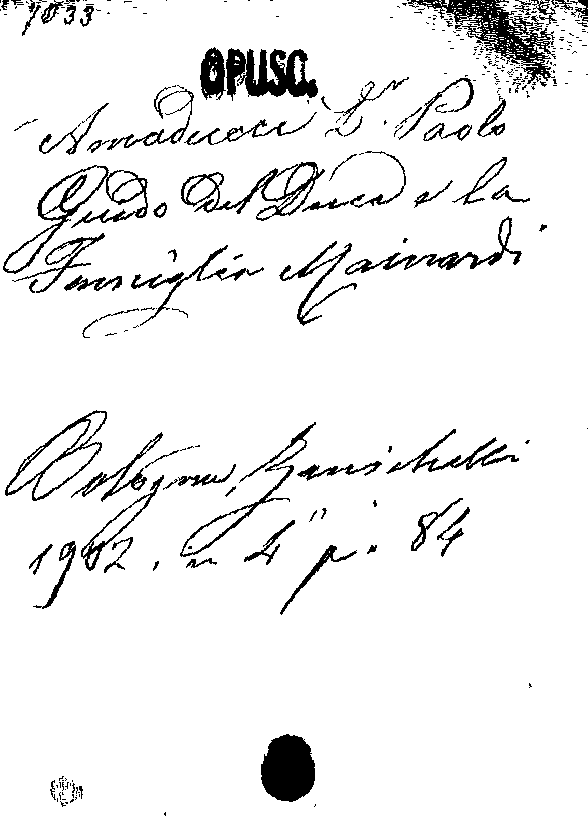 7033
OPUSC.
Amaducci Dr. Paolo
Guido Del Duca e la
Famiglia Mainardi
Bologna, Zanichelli
1902. in 4° p. 84